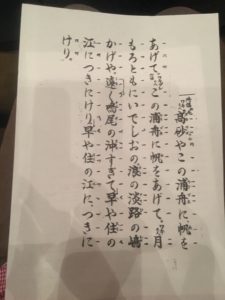 高砂やこの浦舟に、帆を
あげて、この浦舟に帆をあげて、月
もろともにいでしおの、波の淡路の嶋
かげや、遠く鳴尾の沖すぎて、早や住の
江につきにけり、早や住の江に、つきに
けり。